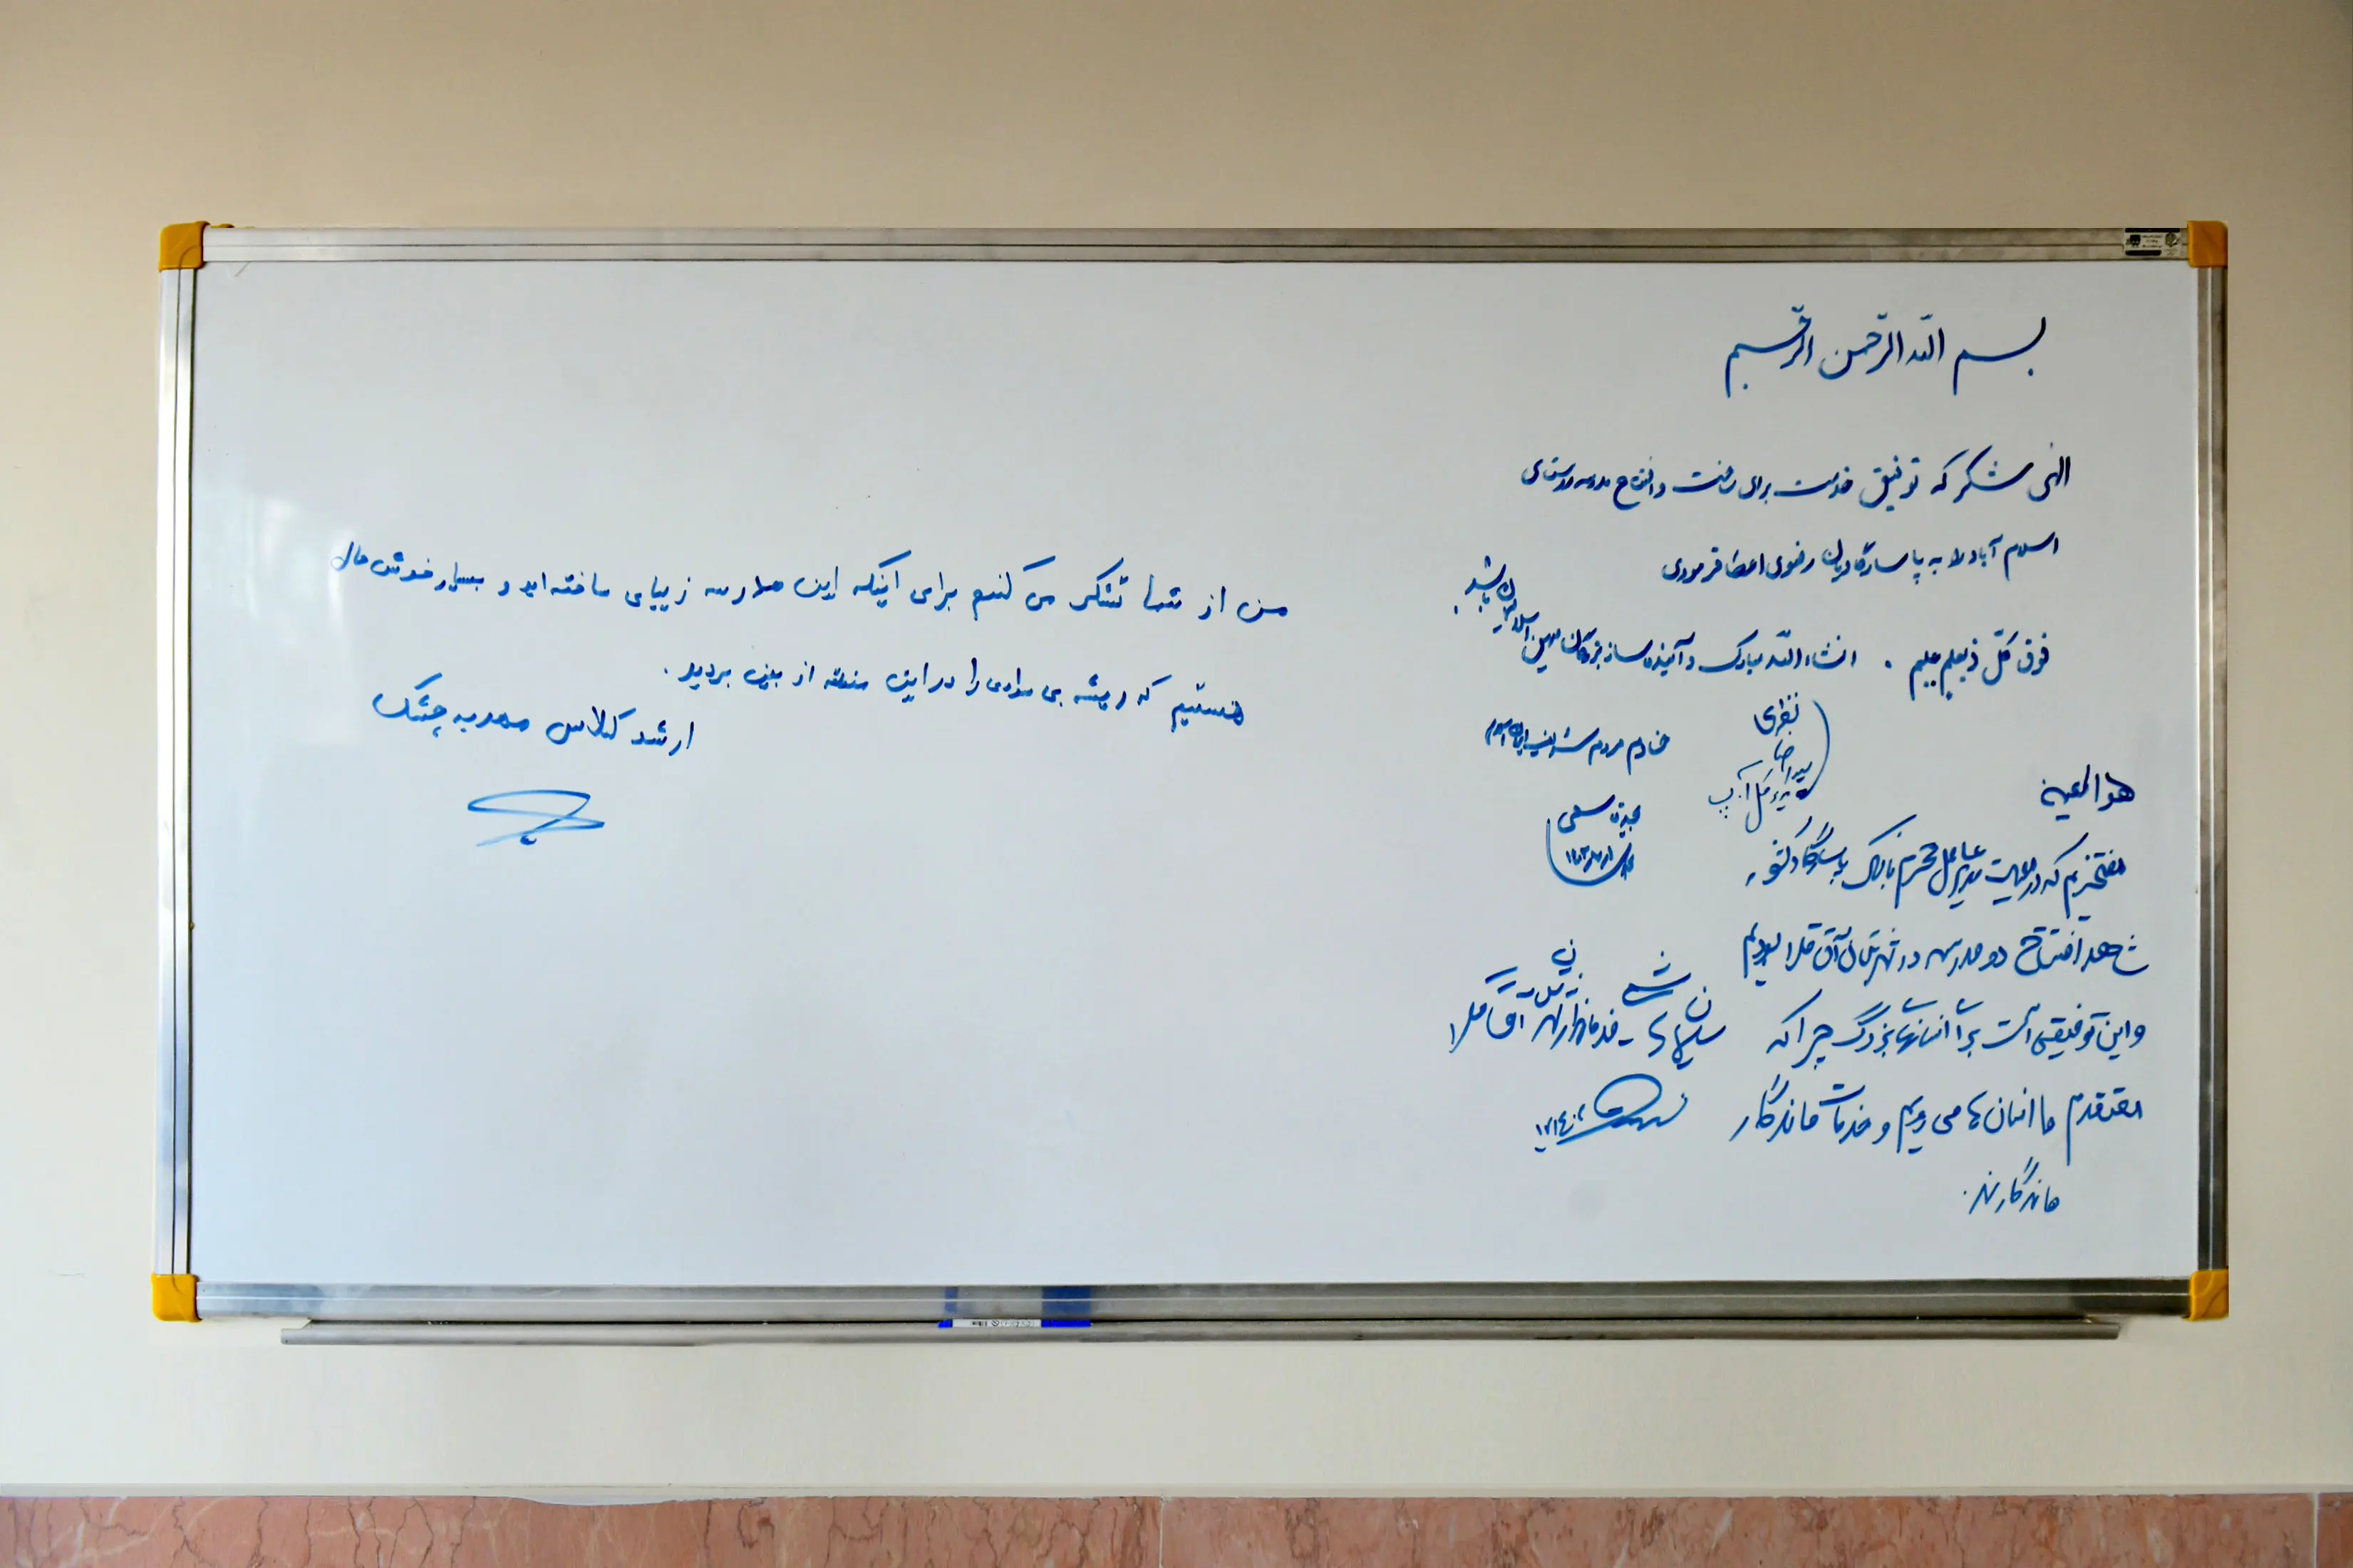 بسم الله الرحمن الرحیم
الهی شکر که توفیق خدمت برای ساخت و افتتاح مدرسه روستای
اسلام آباد را به پاسارگادیان رضوی اعطا فرمودی
فوق کل ذی علم علیم . انشاء الله مبارک و آینده ساز بزرگان میهن اسلامی‌مان باشد.
خادم مردم شریف ایران اسلامی
هوالمعین
مفتخریم که در معیت مدیرعامل محترم بانک پاسارگاد کشور
شاهد افتتاح دو مدرسه در شهرستان آق قلا بودیم
و این توفیقی است برای انسانهای بزرگ چرا که
معتقدم ما انسان ها می رویم و خدمات ماندگار
ماندگارند.
فرماندار شهرستان آق قلا
من از شما تشکر می کنم برای اینکه این مدارسه زیبایی ساخته اید و بسیار خوش حال
هستیم که ریشه بی سوادی را در این منطقه از بین بردید.
ارشد کلاس مهدیه چشک